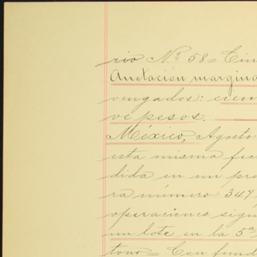 rio Nº 58 = Cin
Anotación margina
vengados: cien
ve pesos.
México, Agosto
esta misma fec
dida en un pro
ra número 347
operaciones sigu
un lote en la 5ª
tono = Con fund